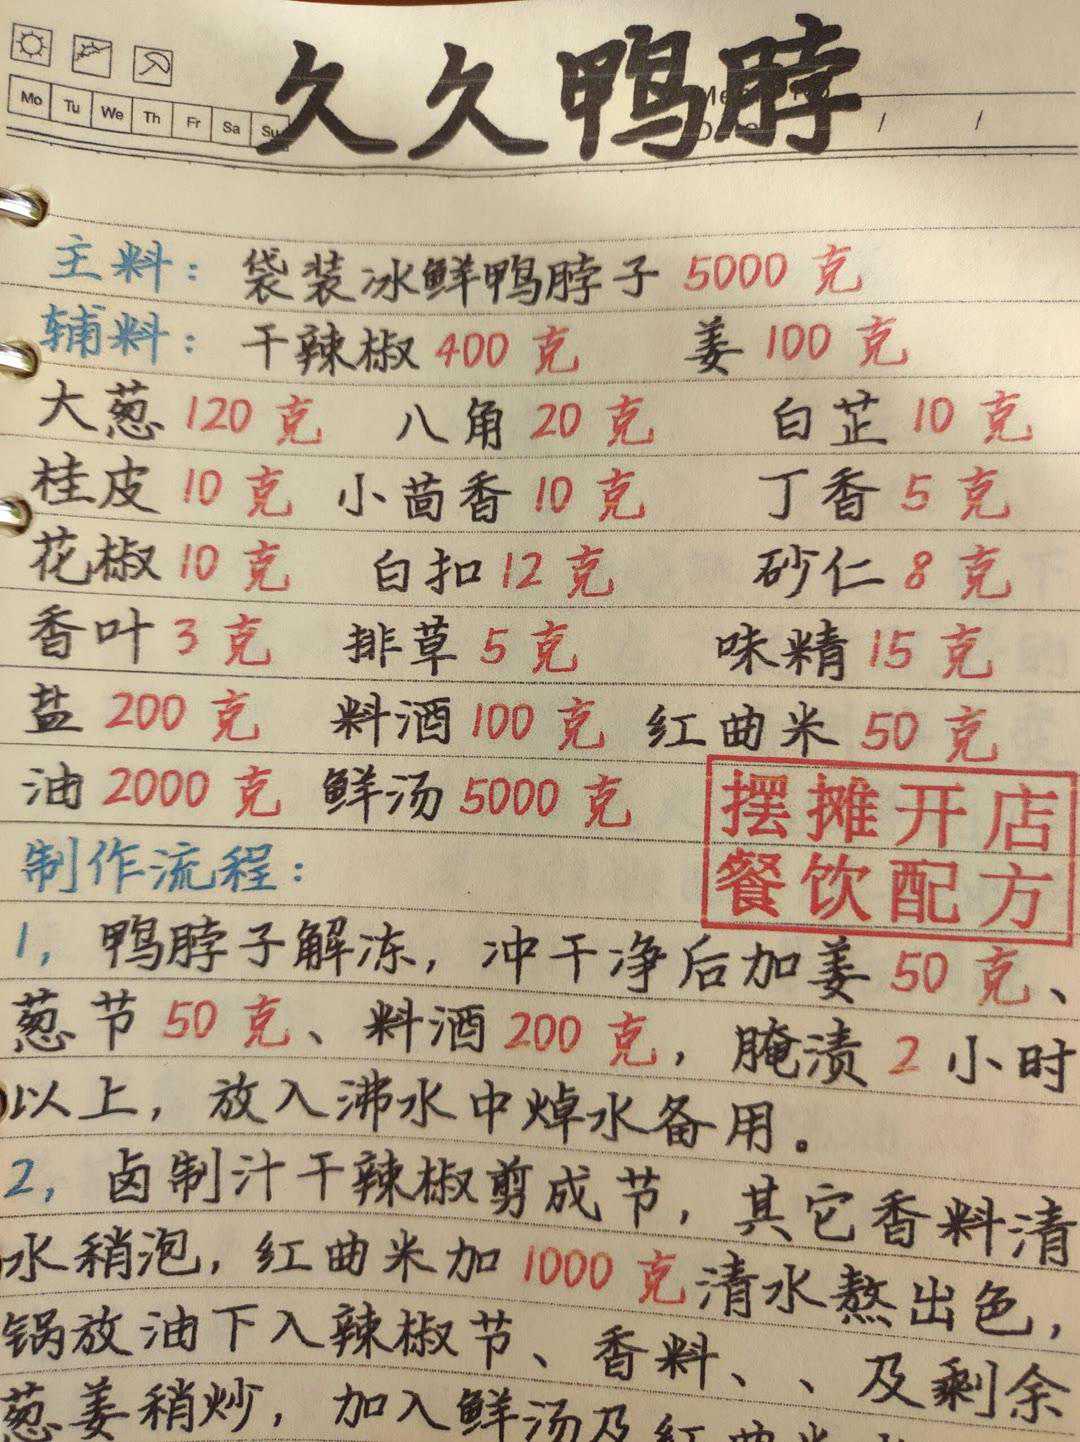 久久鸭脖
Mo Tu We Th Fr Sa Su
主料：袋装冰鲜鸭脖子 5000 克
辅料：干辣椒 400 克 姜 100 克
大葱 120 克 八角 20 克 白芷 10 克
桂皮 10 克 小茴香 10 克 丁香 5 克
花椒 10 克 白扣 12 克 砂仁 8 克
香叶 3 克 排草 5 克 味精 15 克
盐 200 克 料酒 100 克 红曲米 50 克
油 2000 克 鲜汤 5000 克
摆摊开店
餐饮配方
制作流程：
1，鸭脖子解冻，冲干净后加姜 50 克、
葱节 50 克、料酒 200 克，腌渍 2 小时
以上，放入沸水中焯水备用。
2，卤制汁干辣椒剪成节，其它香料清
水稍泡，红曲米加 1000 克清水熬出色，
锅放油下入辣椒节、香料、、及剩余
葱姜稍炒，加入鲜汤及红曲米